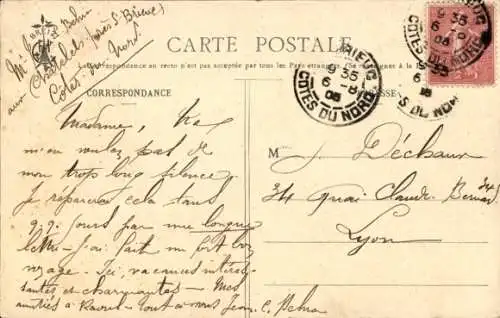 CARTE POSTALE
La Correspondance au recto n'est pas acceptée par tous les Pays étrangers. (Se renseigner à la
CORRESPONDANCE
Madame, Ne
m'en voulez pas de
mon trop long silence
Je réparerai cela dans
qq. jours par une longue
lettre — J'ai fait un fort bon
voyage — Ici, vacances intéres-
santes et charmantes — Mes
amitiés à Raoul — tout à vous Jean C. Behna
M Déchaux
34 Quai Claude Bernard 34
Lyon
BRIEUC
9 35
6 -8
COTES DU NORD
BRIEUC
9 35
6 -8
COTES DU NORD
9 35
DU NOR
Behna
Châtelets (près St Brieuc)
aux
Côtes-du-Nord